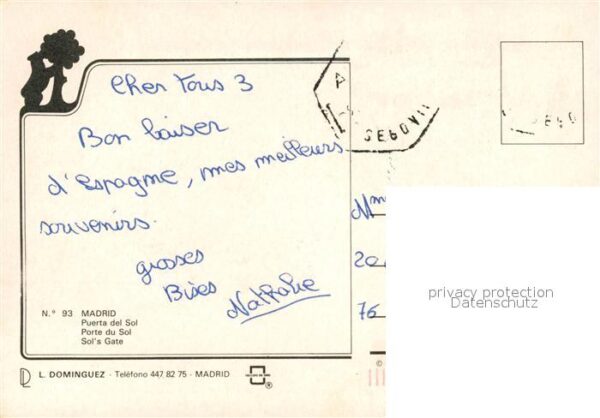 Cher Tous 3
Bon baiser
d'Espagne, mes meilleurs
souvenirs.
grosses
Bises
Nathalie
A
SEGOVI
Mm
20
76
privacy protection
Datenschutz
N.° 93 MADRID
Puerta del Sol
Porte du Sol
Sol's Gate
L. DOMINGUEZ - Teléfono 447 82 75 - MADRID
©